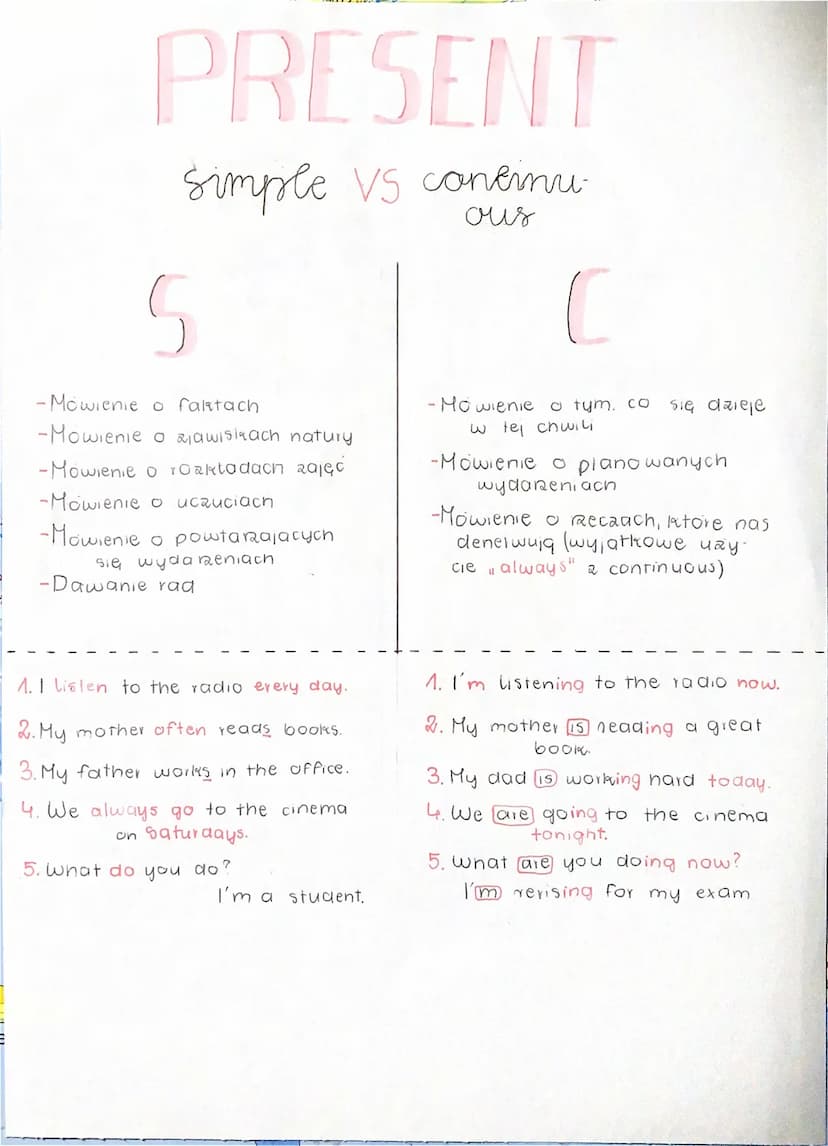 PRESENT
simple VS continu-
ous
S
- Mówienie o faktach
- Mówienie o zjawiskach natury
- Mówienie o rozkładach zajęć
- Mówienie o uczuciach
- Mówienie o powtarzających
się wydarzeniach
- Dawanie rad
C
- Mówienie o tym, co się dzieje
w tej chwili
- Mówienie o planowanych
wydarzeniach
- Mówienie o rzeczach, które nas
denerwują (wyjątkowe uży-
cie „always" z continuous)
1. I listen to the radio every day.
2. My mother often reads books.
3. My father works in the office.
4. We always go to the cinema
on Saturdays.
5. What do you do?
I'm a student.
1. I'm listening to the radio now.
2. My mother is reading a great
book.
3. My dad is working hard today.
4. We are going to the cinema
tonight.
5. What are you doing now?
I'm revising for my exam